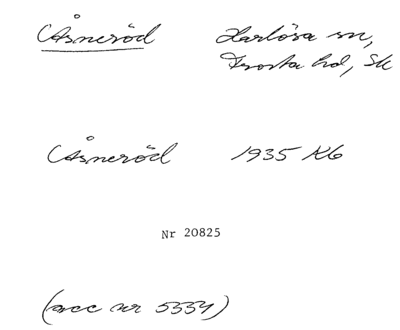 Åsneröd Harlösa sn,
Frosta hd, Sk
Åsneröd 1935 Kb
Nr 20825
(acc nr 5334)